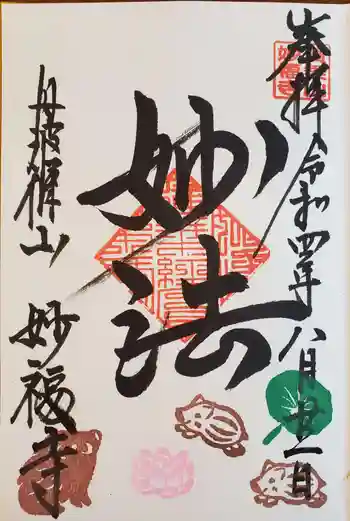 奉拝 令和四年八月廿一日
妙法
丹波篠山 妙福寺